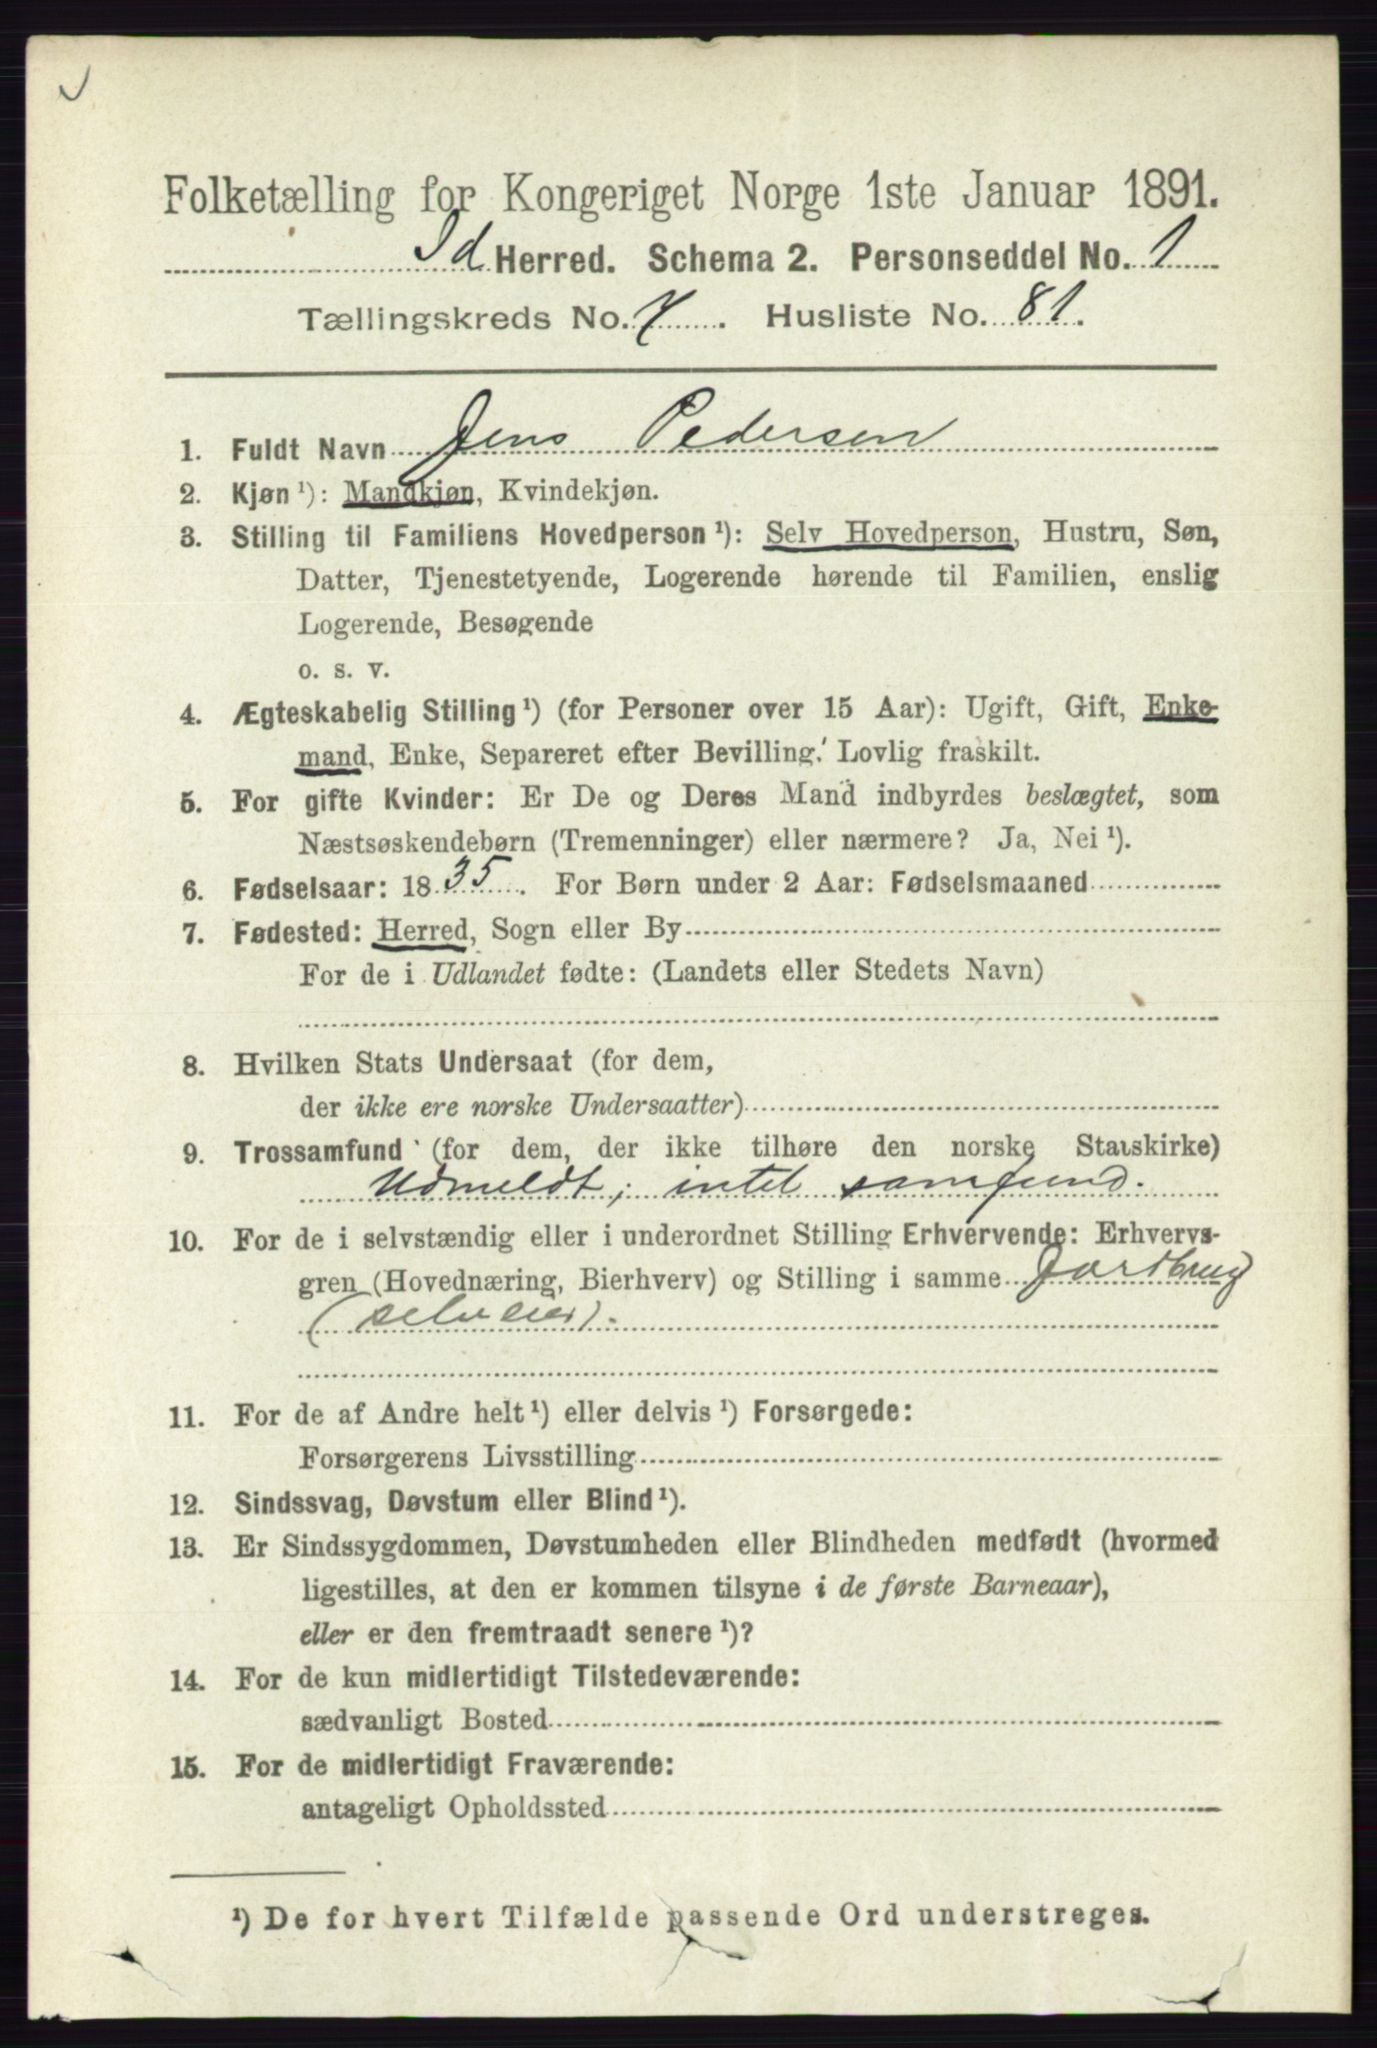 Folketælling for Kongeriget Norge 1ste Januar 1891.
Id Herred. Schema 2. Personseddel No. 1
Tællingskreds No. 7. Husliste No. 81.
1. Fuldt Navn Jens Pedersen
2. Kjøn ¹): Mandkjøn, Kvindekjøn.
3. Stilling til Familiens Hovedperson ¹): Selv Hovedperson, Hustru, Søn,
Datter, Tjenestetyende, Logerende hørende til Familien, enslig
Logerende, Besøgende
o. s. v.
4. Ægteskabelig Stilling ¹) (for Personer over 15 Aar): Ugift, Gift, Enke-
mand, Enke, Separeret efter Bevilling. Lovlig fraskilt.
5. For gifte Kvinder: Er De og Deres Mand indbyrdes beslægtet, som
Næstsøskendebørn (Tremenninger) eller nærmere? Ja, Nei ¹).
6. Fødselsaar: 1835. For Børn under 2 Aar: Fødselsmaaned
7. Fødested: Herred, Sogn eller By
For de i Udlandet fødte: (Landets eller Stedets Navn)
8. Hvilken Stats Undersaat (for dem,
der ikke ere norske Undersaatter)
9. Trossamfund (for dem, der ikke tilhøre den norske Statskirke)
Udmeldt; intet samfund.
10. For de i selvstændig eller i underordnet Stilling Erhvervende: Erhvervs-
gren (Hovednæring, Bierhverv) og Stilling i samme Jordbrug
(selveier).
11. For de af Andre helt ¹) eller delvis ¹) Forsørgede:
Forsørgerens Livsstilling
12. Sindssvag, Døvstum eller Blind ¹).
13. Er Sindssygdommen, Døvstumheden eller Blindheden medfødt (hvormed
ligestilles, at den er kommen tilsyne i de første Barneaar),
eller er den fremtraadt senere ¹)?
14. For de kun midlertidigt Tilstedeværende:
sædvanligt Bosted
15. For de midlertidigt Fraværende:
antageligt Opholdssted
¹) De for hvert Tilfælde passende Ord understreges.